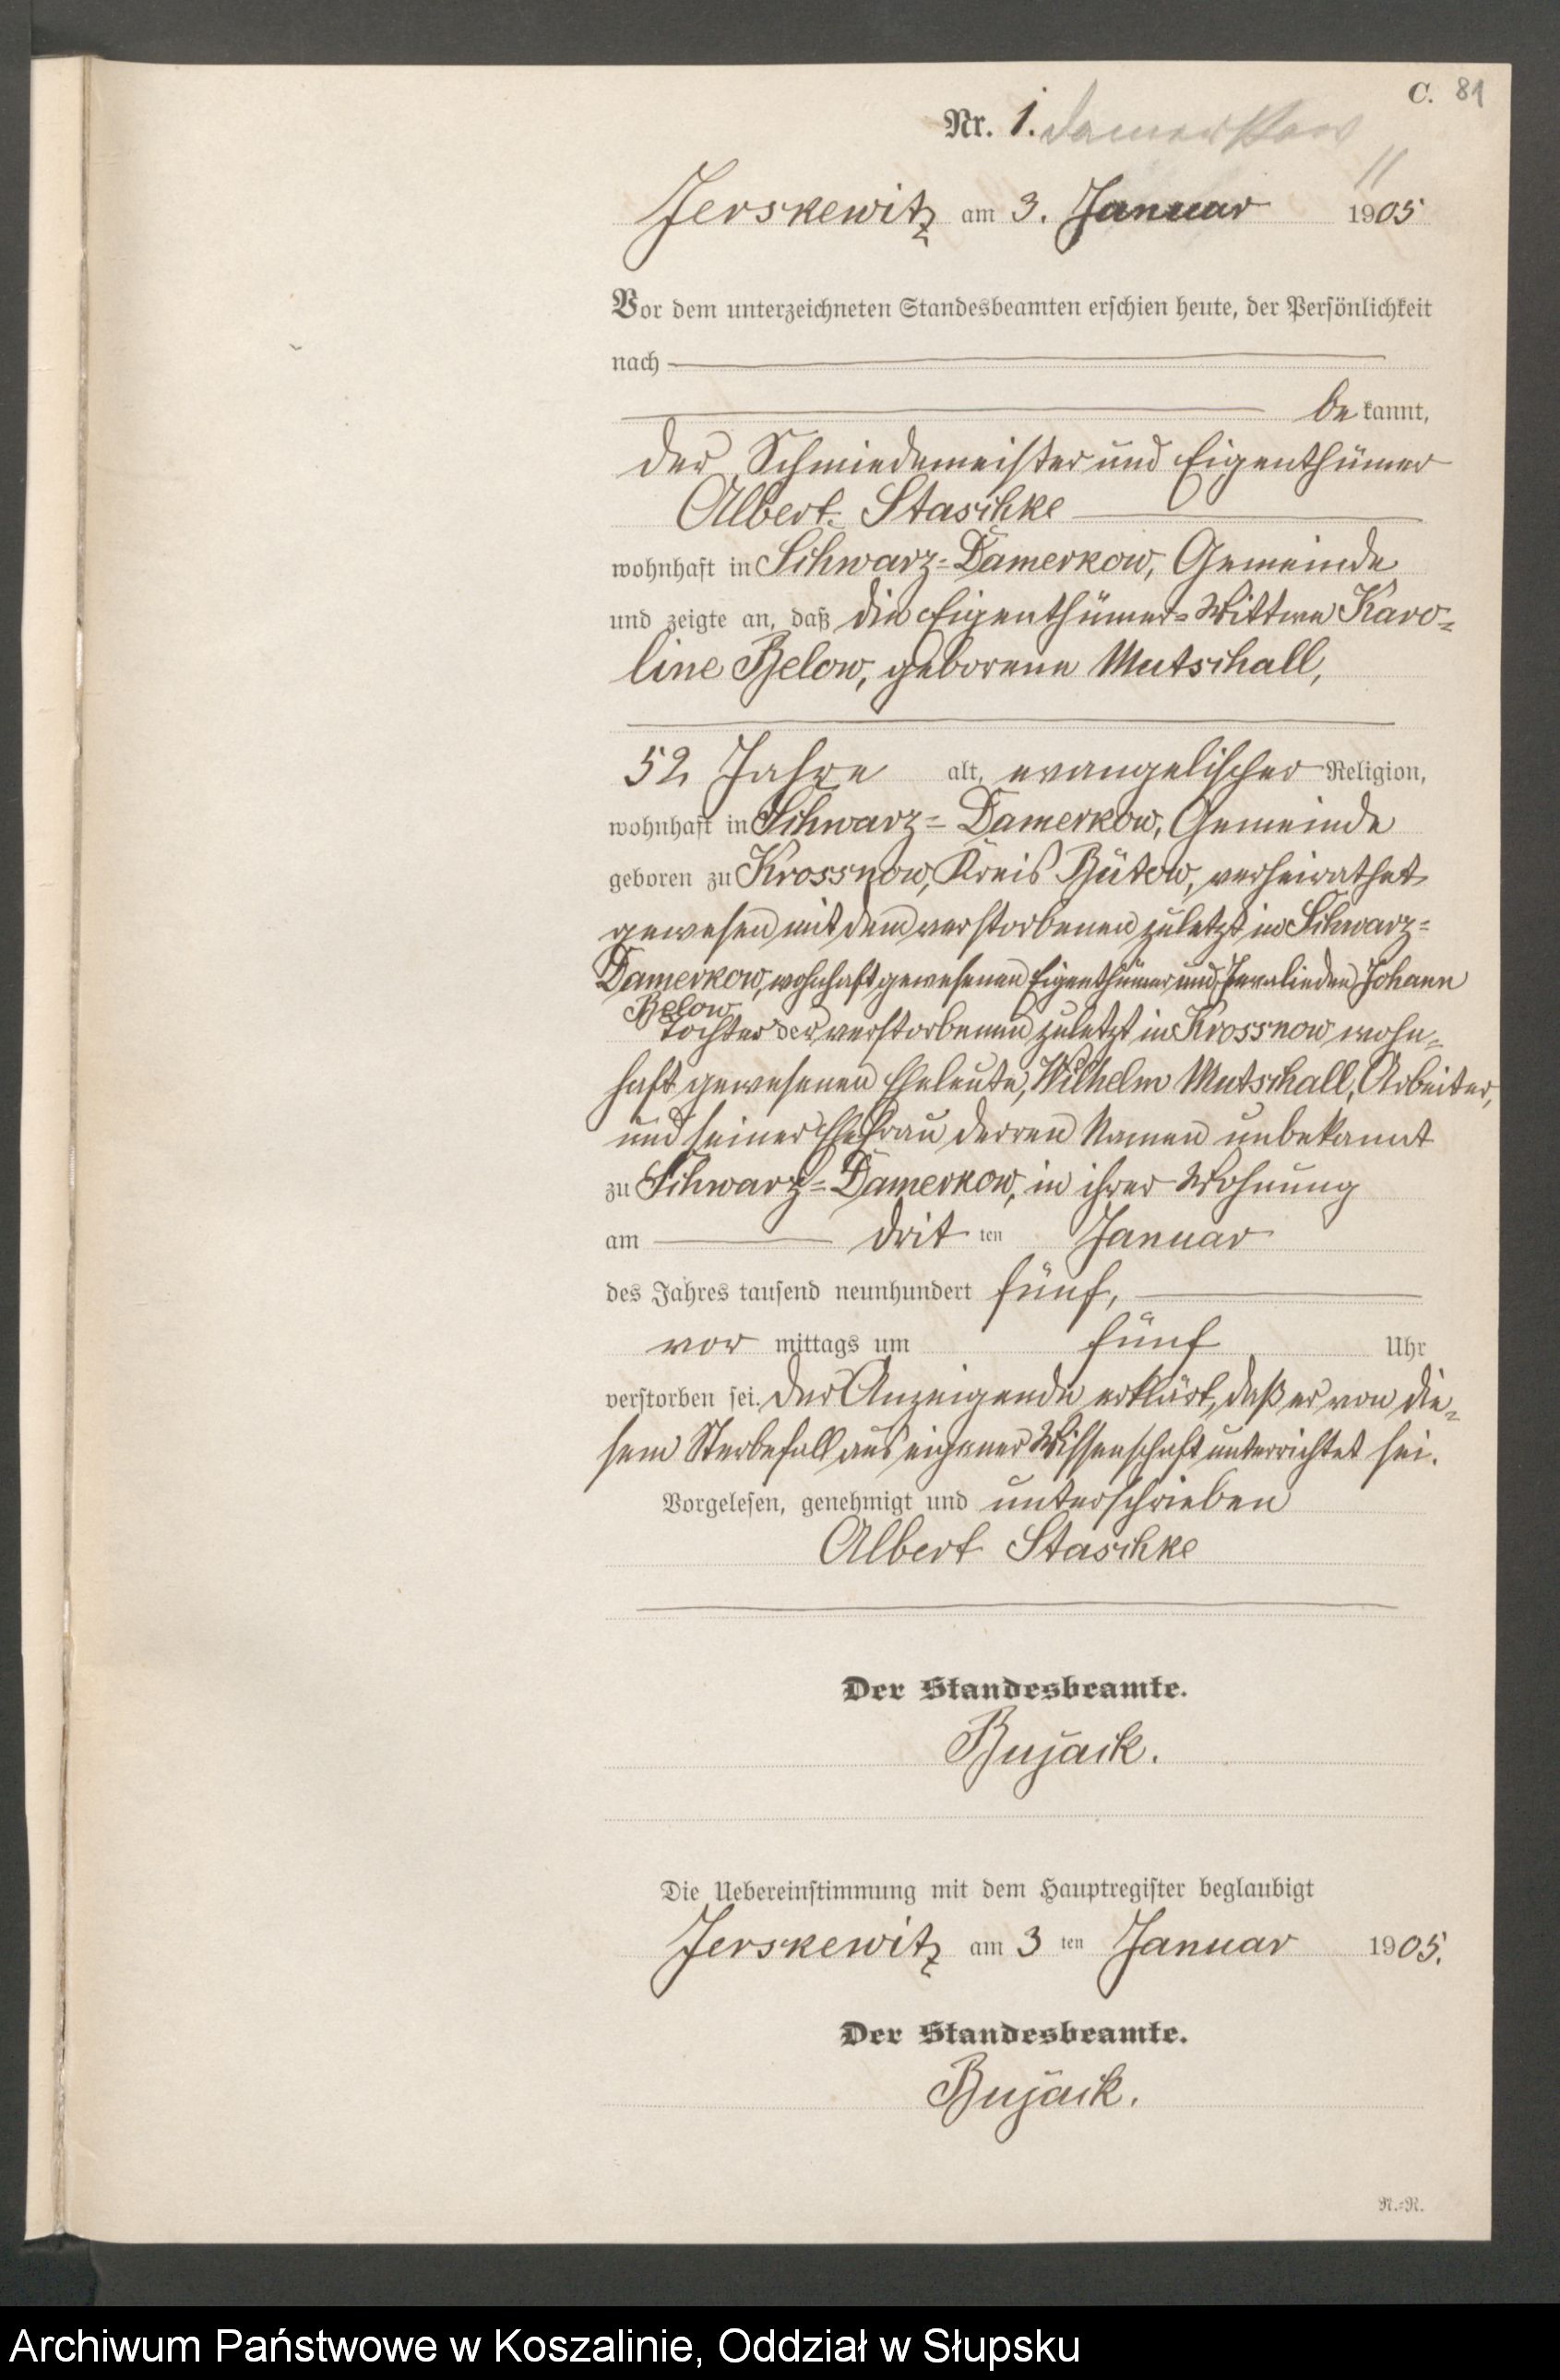 C. 81
Nr. 1. Damerkow
Jerskewitz am 3. Januar 1905
Vor dem unterzeichneten Standesbeamten erschien heute, der Persönlichkeit
nach
be kannt,
der Schmiedemeister und Eigenthümer
Albert Staschke
wohnhaft in Schwarz=Damerkow, Gemeinde
und zeigte an, daß die Eigenthümer=Wittwe Karo=
line Below, geborene Mutschall,
52 Jahre alt, evangelischer Religion,
wohnhaft in Schwarz=Damerkow, Gemeinde
geboren zu Krossnow, Kreis Bütow, verheirathet
gewesen mit dem verstorbenen zuletzt in Schwarz=
Damerkow, wohnhaft gewesenen Eigenthümer und Invalieden Johann
Below
Tochter der verstorbenen zuletzt in Krossnow wohn=
haft gewesenen Eheleute, Wilhelm Mutschall, Arbeiter,
und seiner Ehefrau derren Namen unbekannt
zu Schwarz=Damerkow, in ihrer Wohnung
am drit ten Januar
des Jahres tausend neunhundert fünf,
vor mittags um fünf Uhr
verstorben sei. Der Anzeigende erklärt, daß er von die=
sem Sterbefall aus eigener Wissenschaft unterrichtet sei.
Vorgelesen, genehmigt und unterschrieben
Albert Staschke
Der Standesbeamte.
Bujack.
Die Uebereinstimmung mit dem Hauptregister beglaubigt
Jerskewitz am 3 ten Januar 1905.
Der Standesbeamte.
Bujack.
N.=N.
Archiwum Państwowe w Koszalinie, Oddział w Słupsku